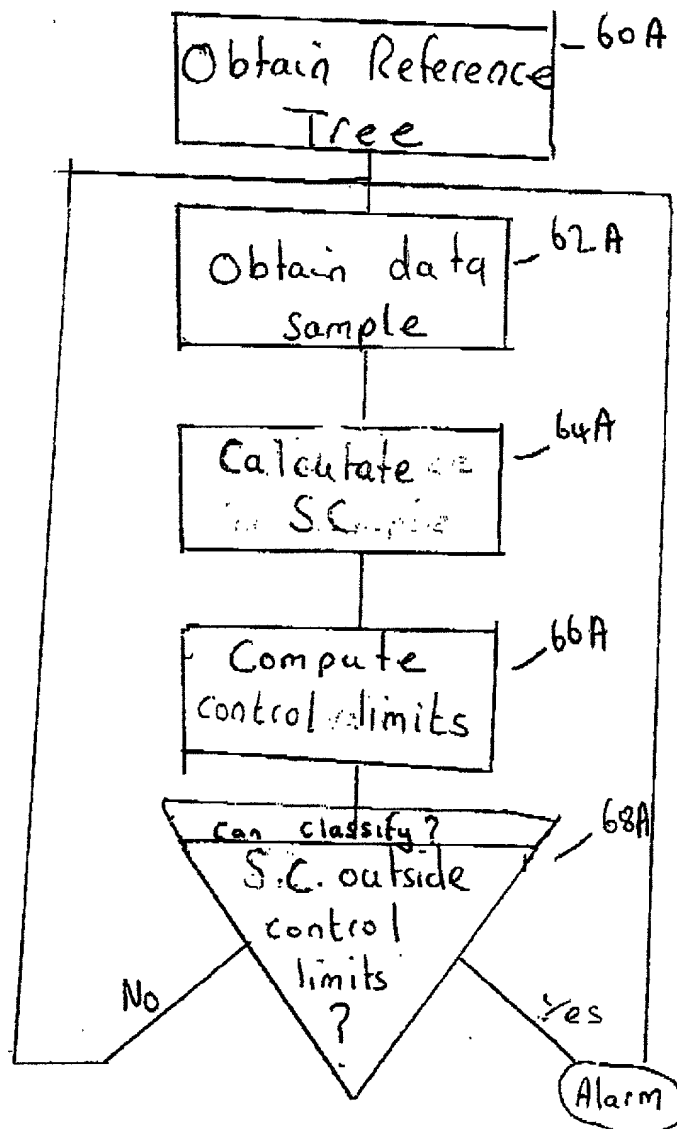 Obtain Reference
Tree
60A
Obtain data
sample
62A
Calculate
S.C.
64A
Compute
control limits
66A
can classify?
S.C. outside
control
limits
?
68A
No
Yes
Alarm